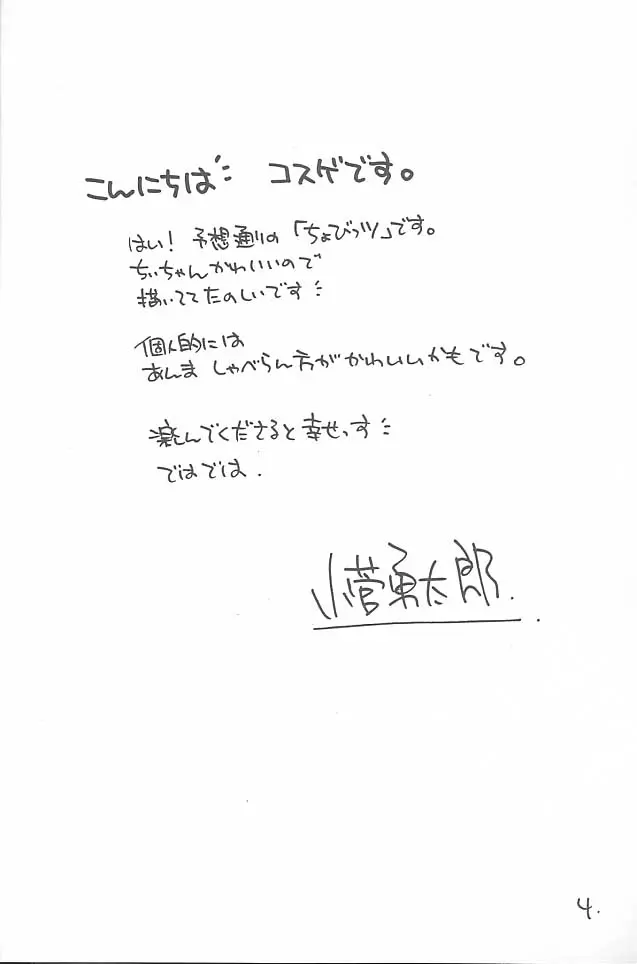 こんにちは コスゲです。
はい！予想通りの「ちょびっツ」です。
ちぃちゃんかわいいので
描いててたのしいです
個人的には
あんま しゃべらん方がかわいいかもです。
楽しんでくださると幸せっす
ではでは.
小菅勇太郎.
4.